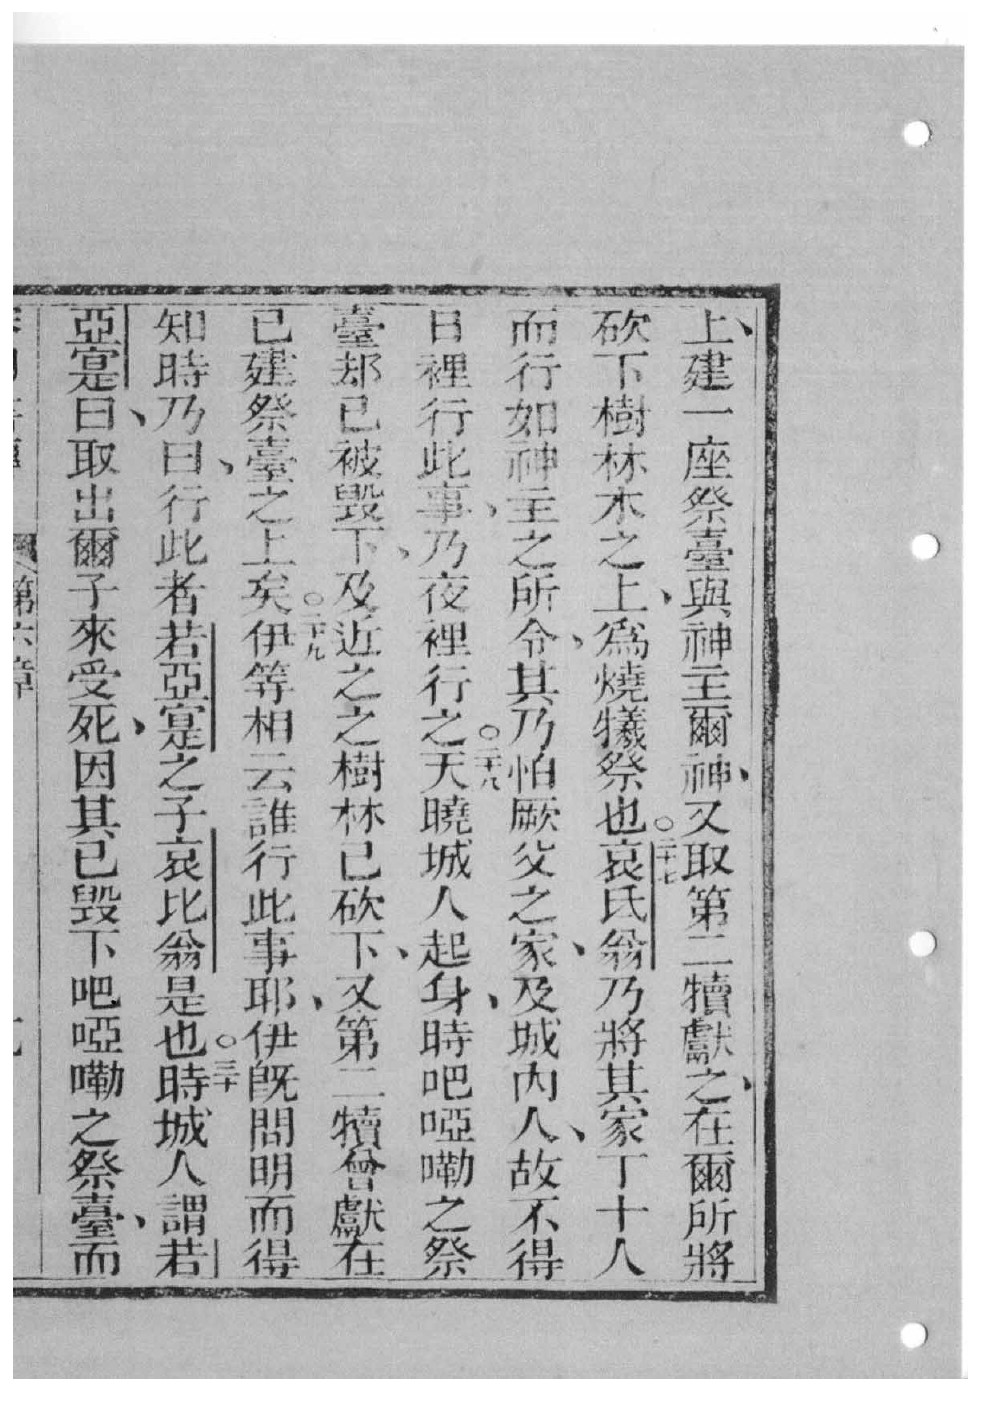 上、建一座祭臺與神主爾神、又取第二犢獻之、在爾所將
砍下樹林木之上、爲燒犧祭也○二十七哀氐翁乃將其家丁十人
而行如神主之所令、其乃怕厥父之家、及城內人、故不得
日裡行此事、乃夜裡行之○二十八天曉城人起身、時吧啞嘞之祭
臺却已被毀下、及近之之樹林已砍下、又第二犢曾獻在
已建祭臺之上矣○二十九伊等相云誰行此事耶、伊旣問明而得
知時乃曰、行此者若亞寔之子哀比翁是也○三十時城人謂若
亞寔曰、取出爾子來受死、因其已毀下吧啞嘞之祭臺、而
第六章